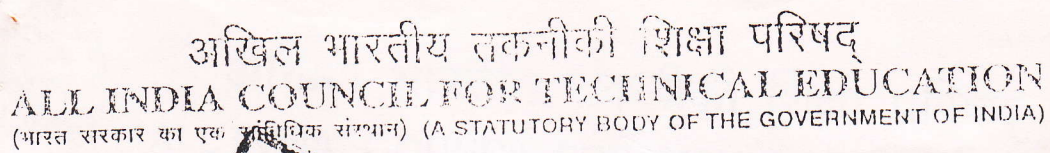 अखिल भारतीय तकनीकी शिक्षा परिषद्
ALL INDIA COUNCIL FOR TECHNICAL EDUCATION
(भारत सरकार का एक सांविधिक संस्थान) (A STATUTORY BODY OF THE GOVERNMENT OF INDIA)